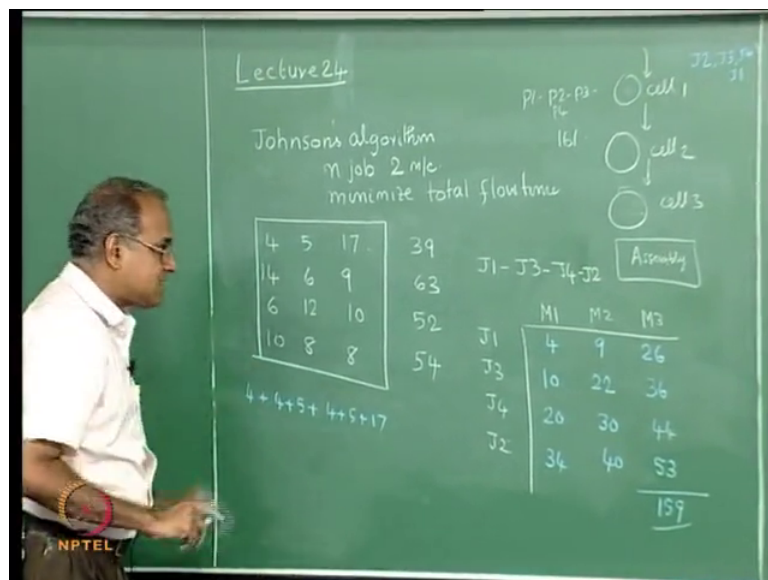 Lecture 24
Johnson's algorithm
n job 2 m/c
minimize total flowtime
4 5 17 39
14 6 9 63
6 12 10 52
10 8 8 54
4+4+5+4+5+17
P1-P2-P3-
P4
161
cell 1
cell 2
cell 3
Assembly
J2, J3,
J1
J1-J3-J4-J2
M1 M2 M3
J1 4 9 26
J3 10 22 36
J4 20 30 44
J2 34 40 53
159
NPTEL